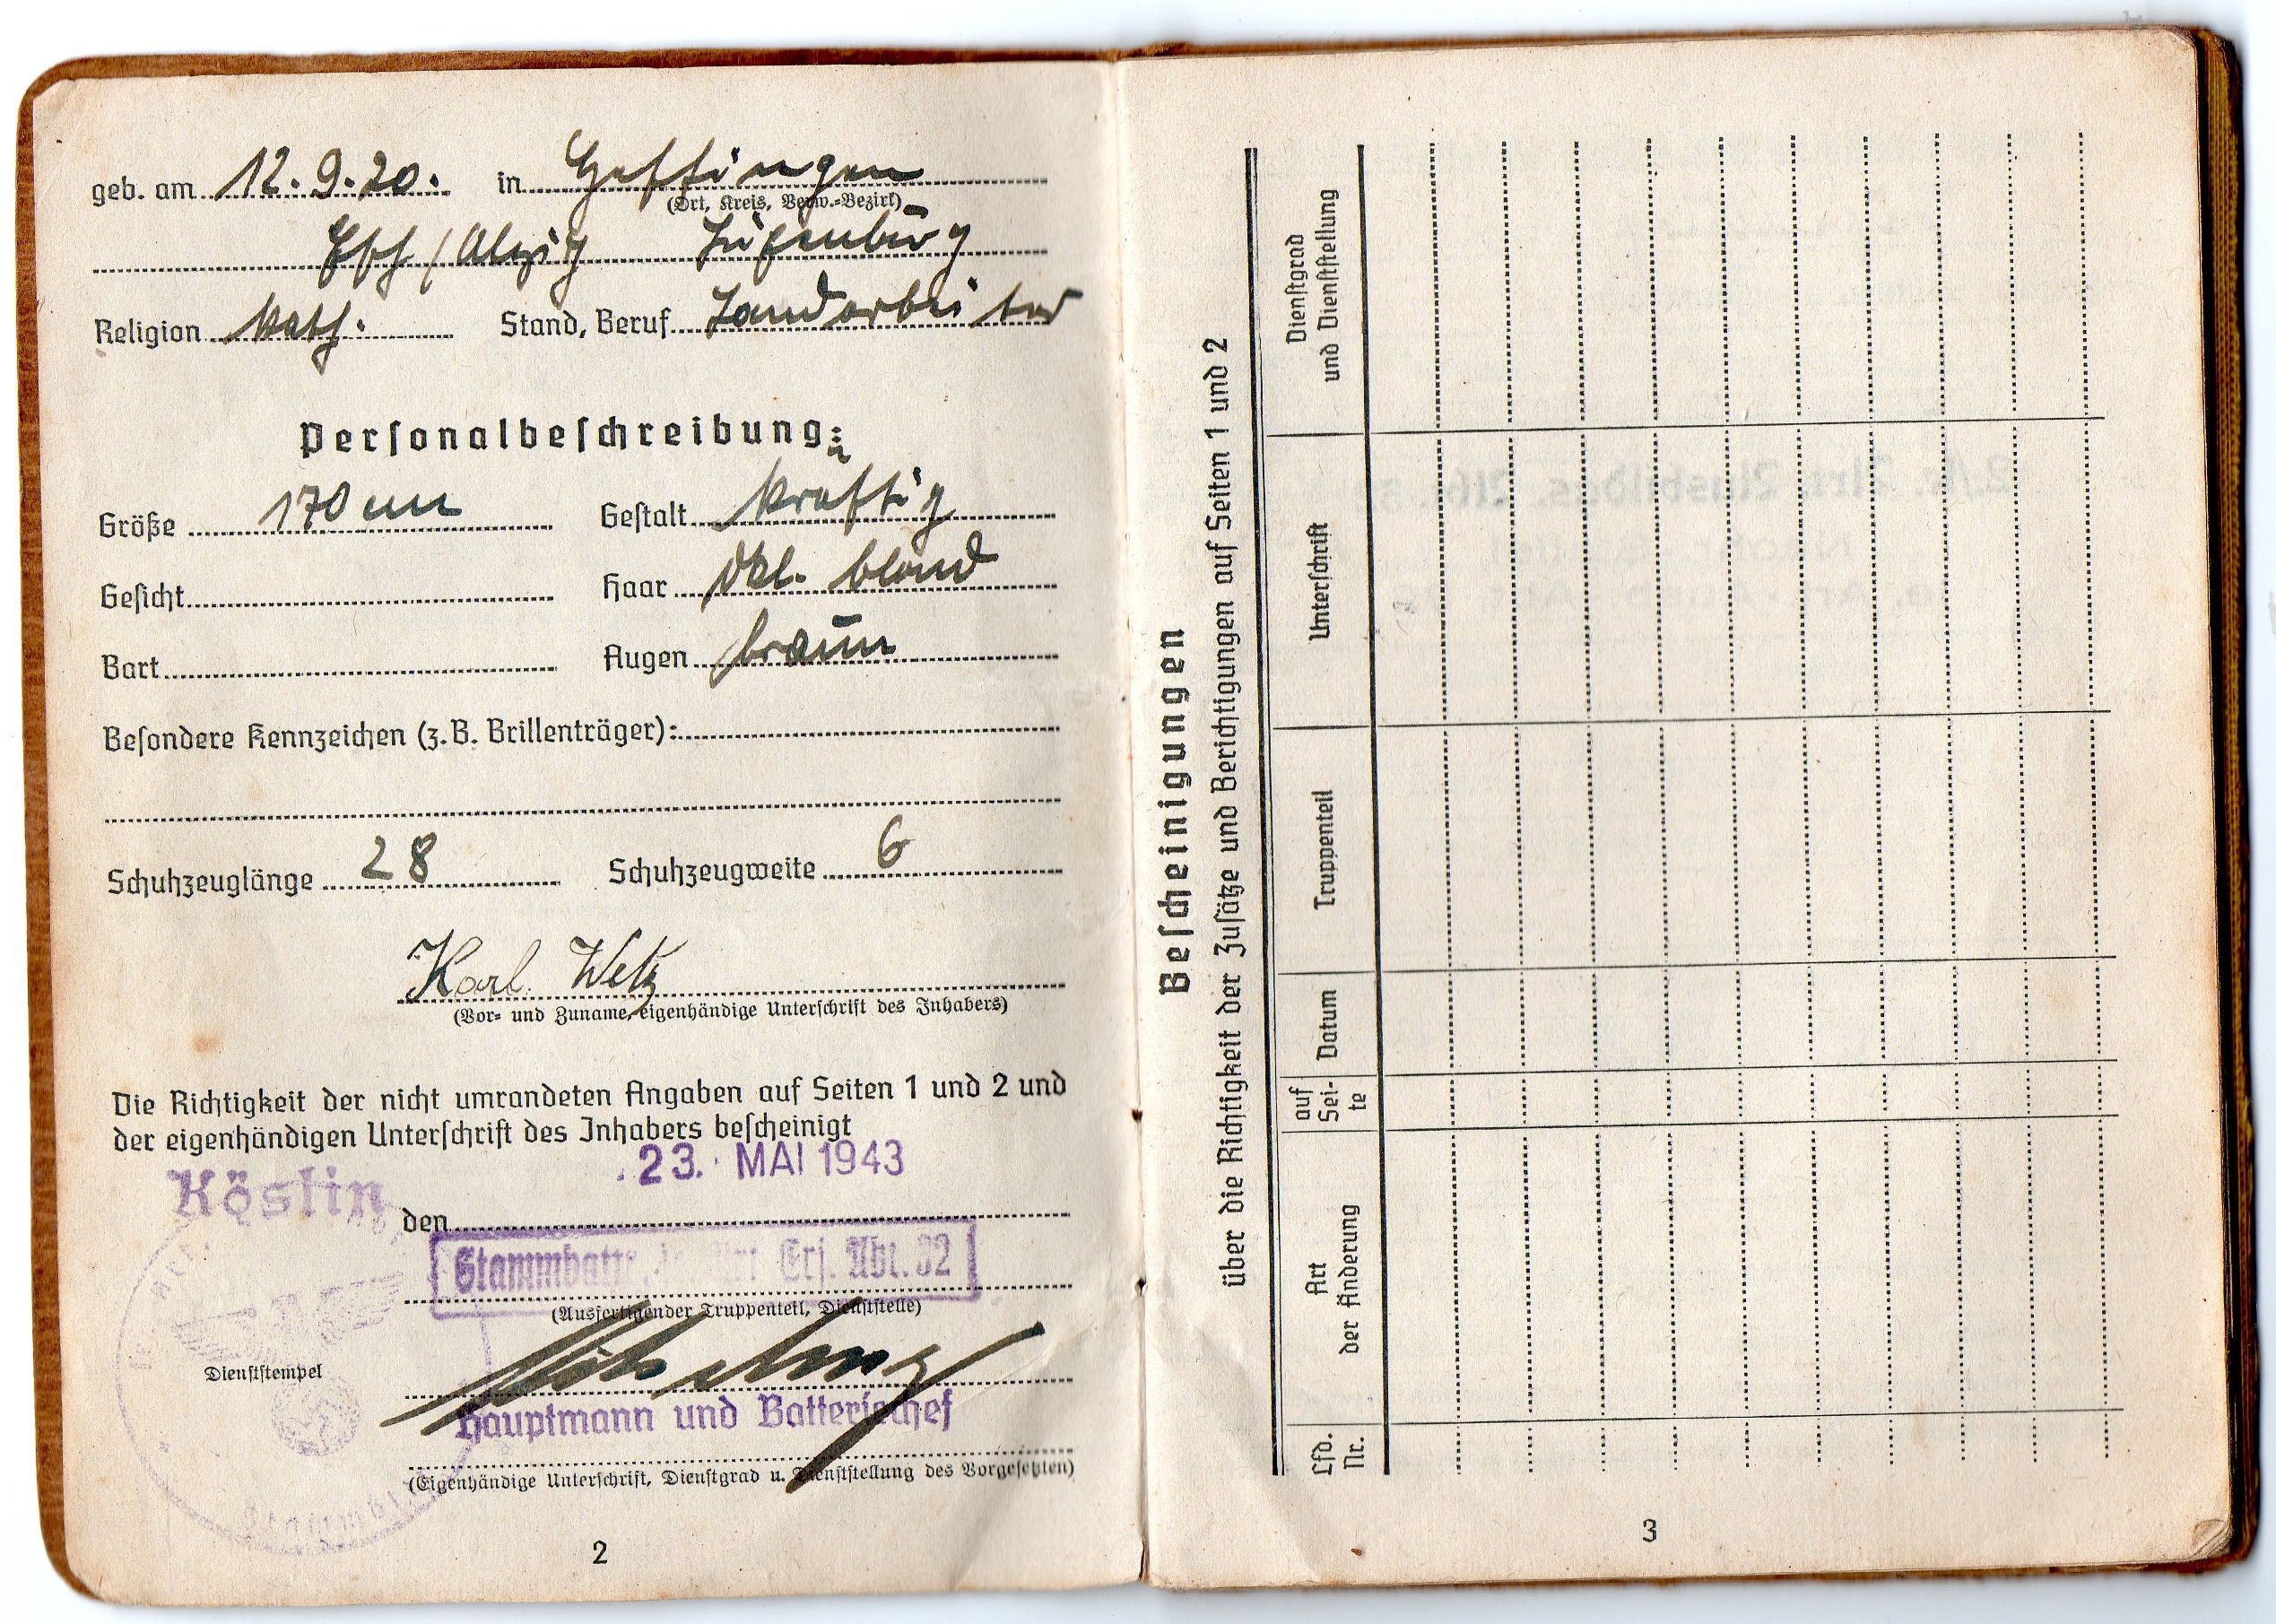 geb. am 12.9.20. in Heffingen
(Ort, Kreis, Verw.=Bezirk)
Esch / Alzig Lützenburg
Religion kath. Stand, Beruf Landarbeiter
Personalbeschreibung:
Größe 170 cm Gestalt kräftig
Gesicht Haar dkl. blond
Bart Augen braun
Besondere Kennzeichen (z.B. Brillenträger):
Schuhzeuglänge 28 Schuhzeugweite 6
Karl Wetz
(Vor= und Zuname, eigenhändige Unterschrift des Inhabers)
Die Richtigkeit der nicht umrandeten Angaben auf Seiten 1 und 2 und
der eigenhändigen Unterschrift des Inhabers bescheinigt
23. MAI 1943
Köslin den
Stammbattr. Ers. Abt. 32
(Ausfertigender Truppenteil, Dienststelle)
Dienststempel
Hauptmann und Batteriechef
(Eigenhändige Unterschrift, Dienstgrad u. Dienststellung des Vorgesetzten)
2
Bescheinigungen
über die Richtigkeit der Zusätze und Berichtigungen auf Seiten 1 und 2
Lfd. Nr.
Art der Änderung
auf Sei-te
Datum
Truppenteil
Unterschrift
Dienstgrad und Dienststellung
3